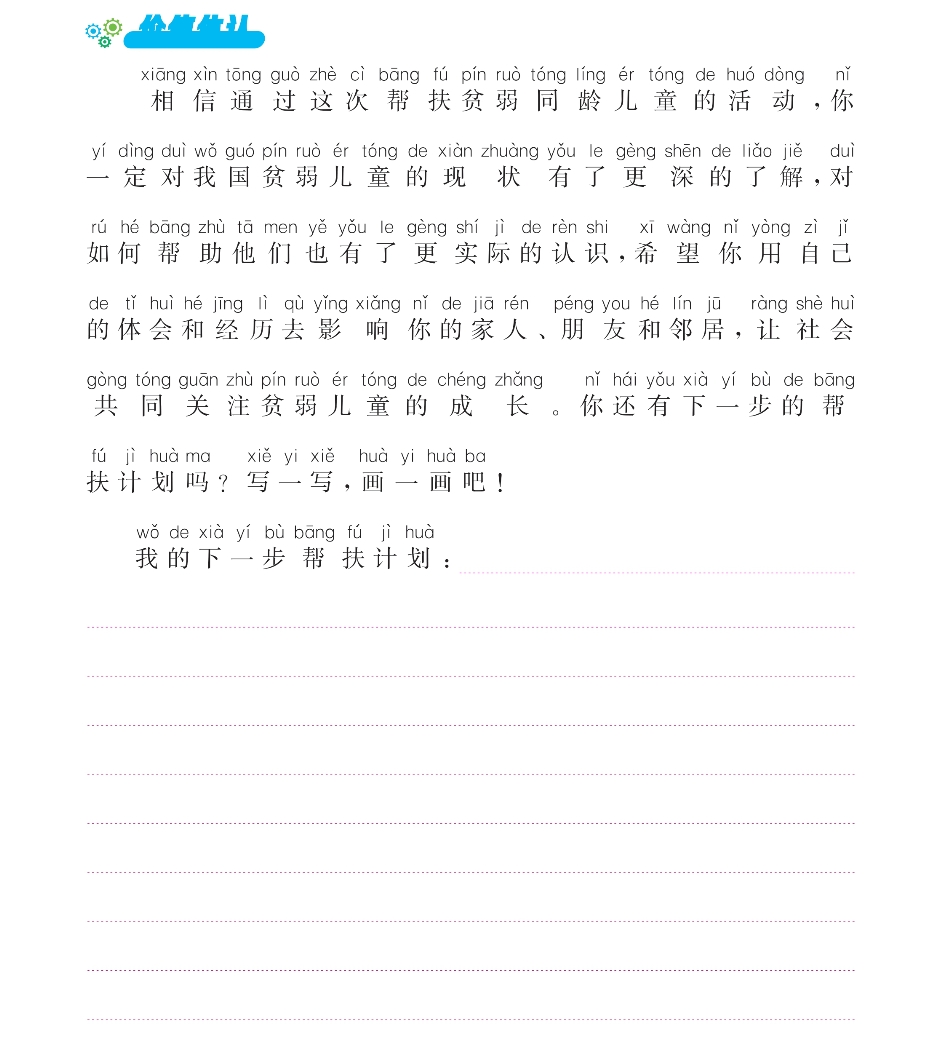 xiāng xìn tōng guò zhè cì bāng fú pín ruò tóng líng ér tóng de huó dòng nǐ
相信通过这次帮扶贫弱同龄儿童的活动，你
yí dìng duì wǒ guó pín ruò ér tóng de xiàn zhuàng yǒu le gèng shēn de liǎo jiě duì
一定对我国贫弱儿童的现状有了更深的了解，对
rú hé bāng zhù tā men yě yǒu le gèng shí jì de rèn shi xī wàng nǐ yòng zì jǐ
如何帮助他们也有了更实际的认识，希望你用自己
de tǐ huì hé jīng lì qù yǐng xiǎng nǐ de jiā rén péng you hé lín jū ràng shè huì
的体会和经历去影响你的家人、朋友和邻居，让社会
gòng tóng guān zhù pín ruò ér tóng de chéng zhǎng nǐ hái yǒu xià yí bù de bāng
共同关注贫弱儿童的成长。你还有下一步的帮
fú jì huà ma xiě yi xiě huà yi huà ba
扶计划吗？写一写，画一画吧！
wǒ de xià yí bù bāng fú jì huà
我的下一步帮扶计划：